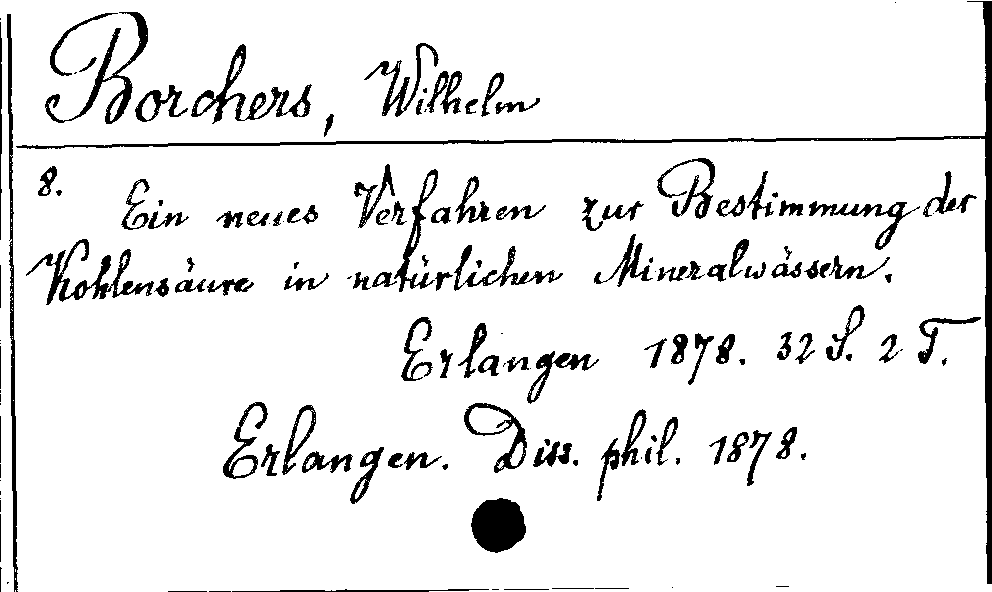 Borchers, Wilhelm
8.
Ein neues Verfahren zur Bestimmung der
Kohlensäure in natürlichen Mineralwässern.
Erlangen 1878. 32 S. 2 T.
Erlangen. Diss. phil. 1878.